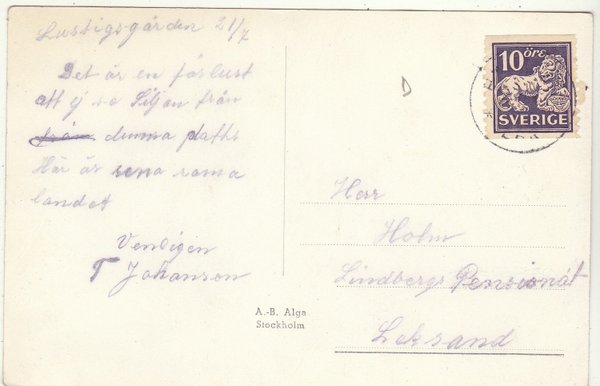 Lustigsgården 21/7
Det är en förlust
att ej se Siljan från
från denna plats
Här är rena rama
landet
Vendigen
T Johanson
A.-B. Alga
Stockholm
10 ÖRE
SVERIGE
D
Herr
Holm
Lindbergs Pensionat
Leksand